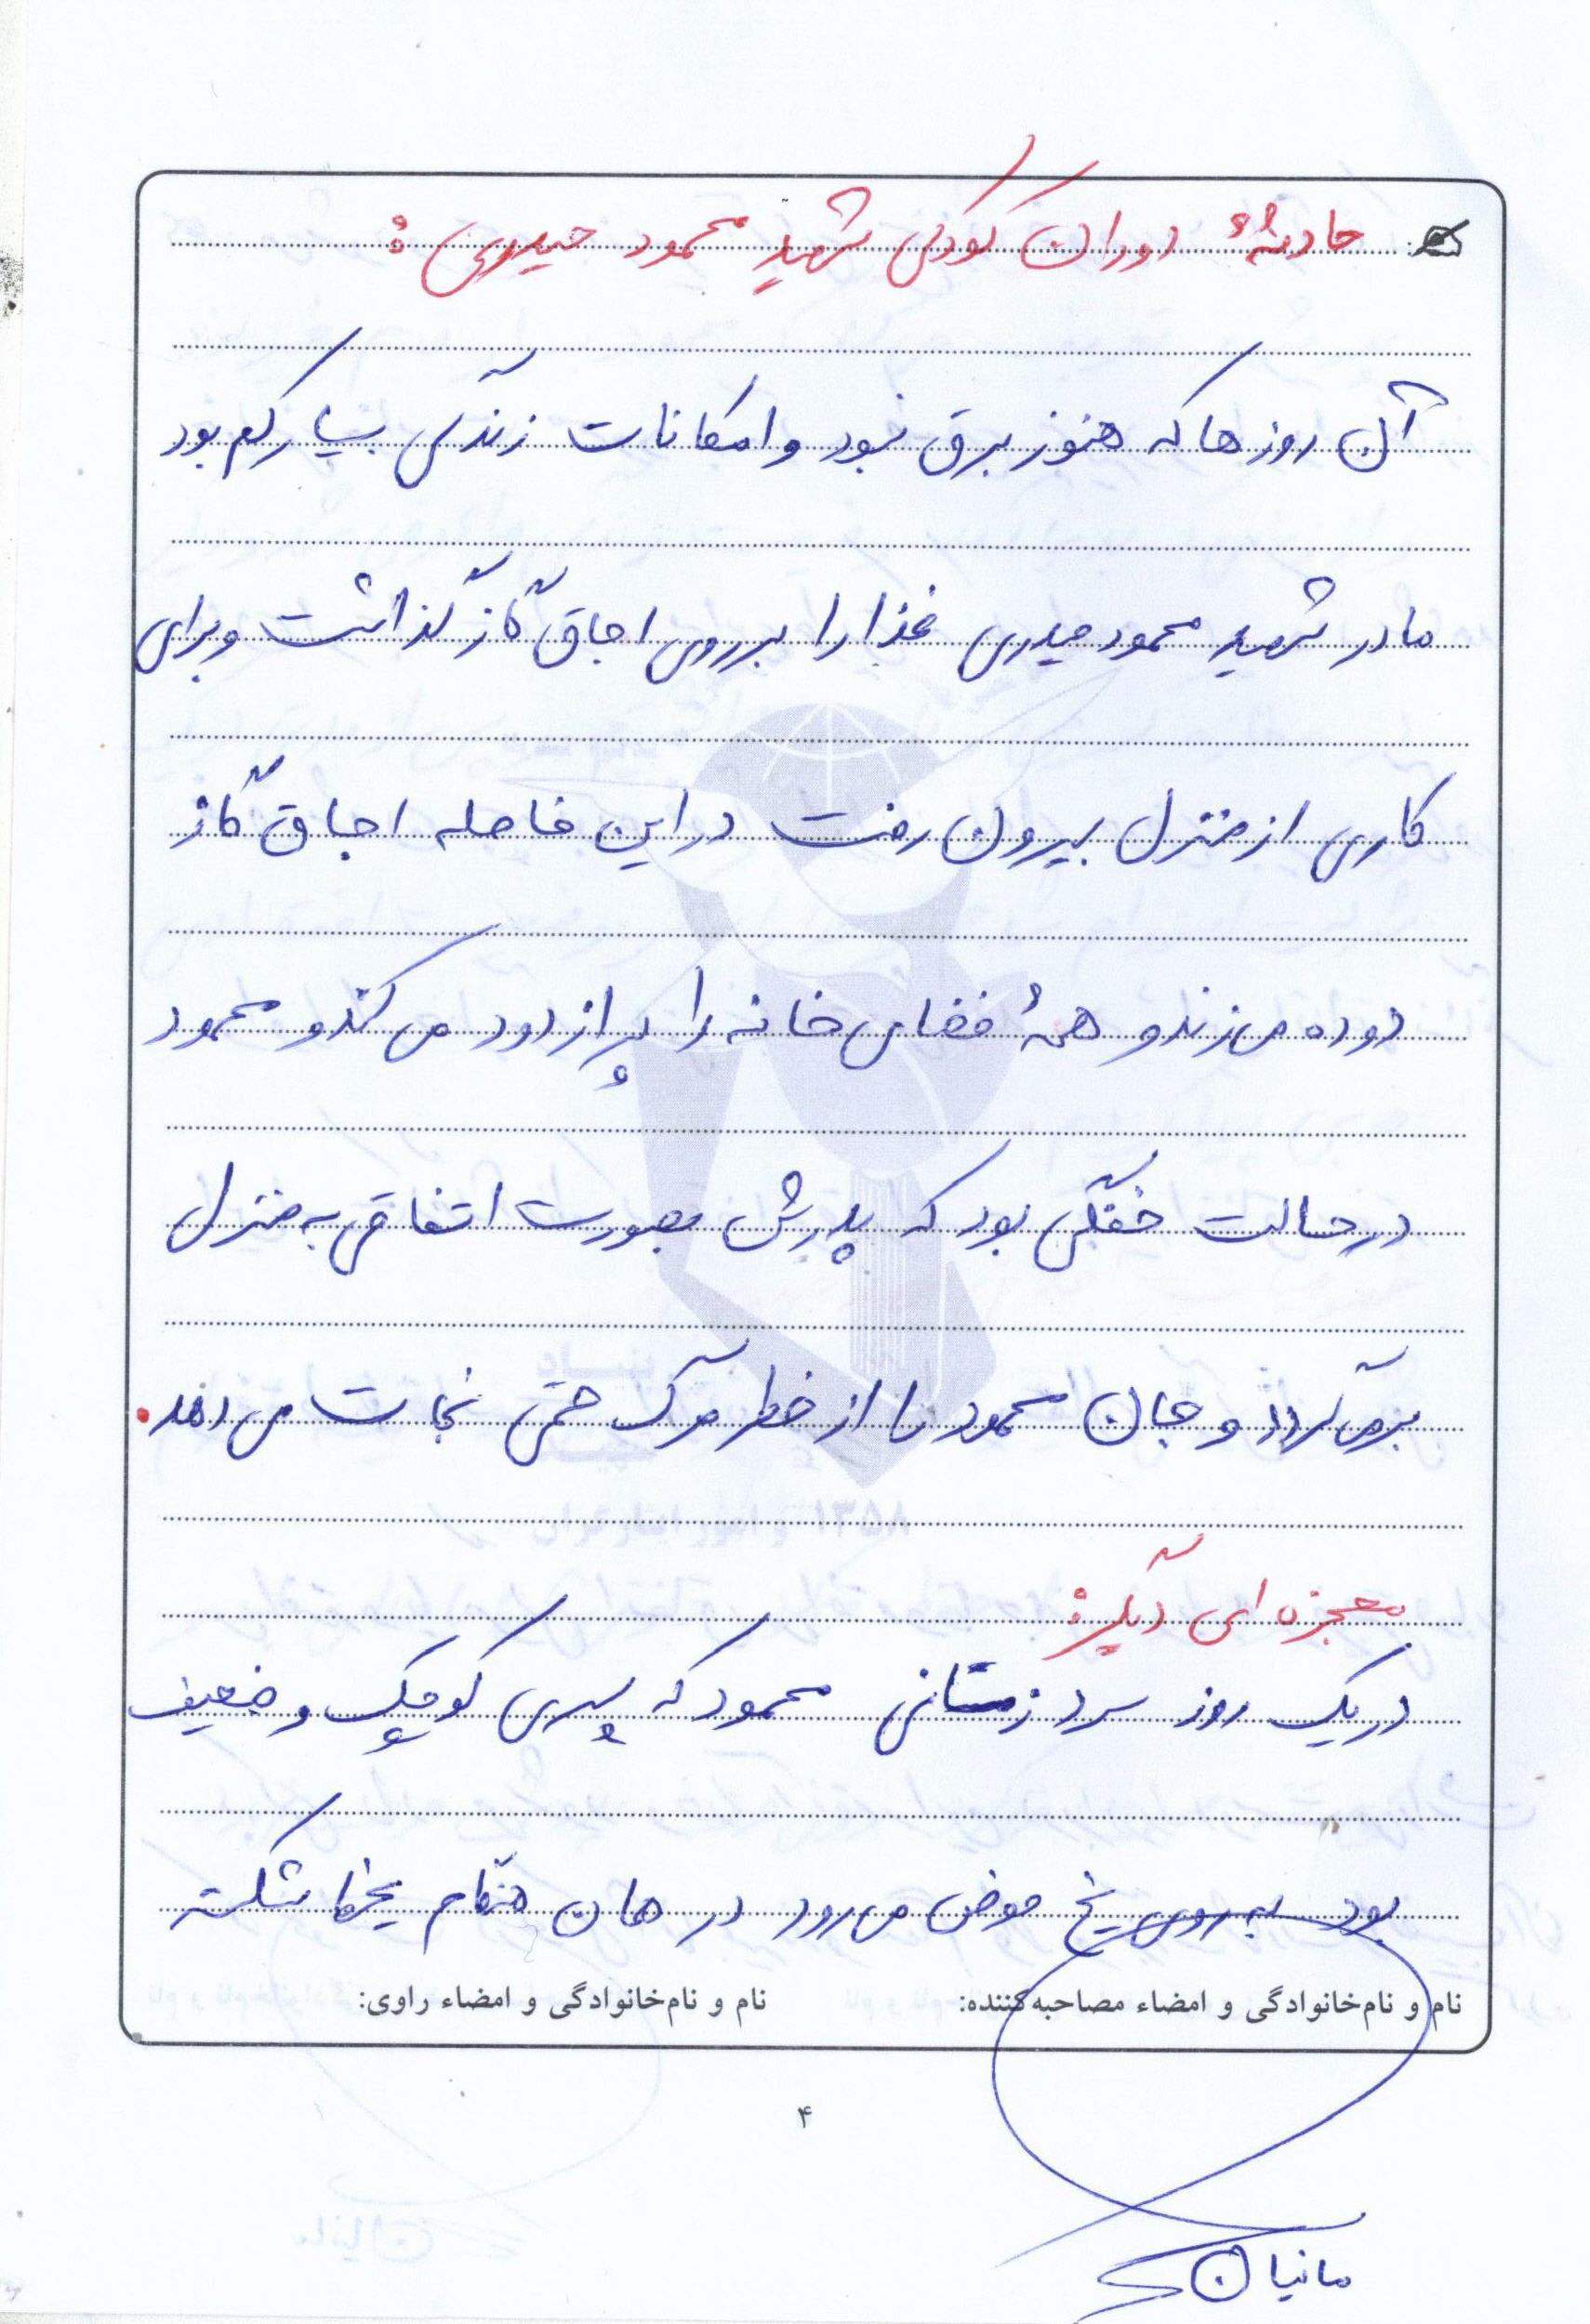 حادثهٔ دوران کودکی شهید محمود حیدری :
آن روزها که هنوز برق نبود و امکانات زندگی بسیار کم بود
مادر شهید محمود حیدری غذا را بر روی اجاق گاز گذاشت و برای
کاری از منزل بیرون رفت در این فاصله اجاق گاز
دوده می زند و همهٔ فضای خانه را پر از دود می کند و محمود
در حالت خفگی بود که پدرش بصورت اتفاقی به منزل
برمی گردد و جان محمود را از خطر مرگ حتمی نجات می دهد.
معجزه ای دیگر :
در یک روز سرد زمستانی محمود که پسری کوچک و ضعیف
بود به روی یخ حوض می رود در همان هنگام یخها شکسته
نام و نام‌خانوادگی و امضاء مصاحبه‌کننده:
نام و نام‌خانوادگی و امضاء راوی:
۴
مانیان